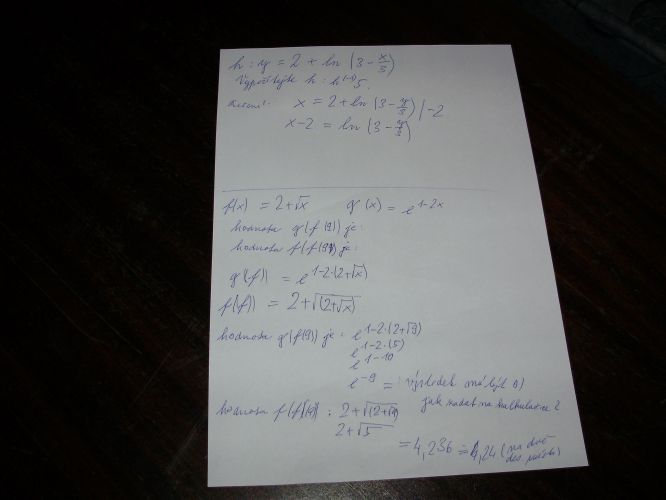 h: y = 2 + ln (3 - x/3)
Vypočítejte h: h(-1) 5.
Řešení: x = 2 + ln (3 - y/3) | -2
x - 2 = ln (3 - y/3)
f(x) = 2 + √x g(x) = e^1-2x
hodnota g(f(9)) je:
hodnota f(f(9)) je:
g(f)) = e^1-2·(2+√x)
f(f)) = 2 + √(2+√x)
hodnota g(f(9)) je: e^1-2·(2+√9)
e^1-2·(5)
e^1-10
e^-9 = : výsledek má být 0)
jak zadat na kalkulačce?
hodnota f(f(9)): 2 + √(2+√9)
2 + √5
= 4,236 ≐ 4,24 (na dvě
des. místa)